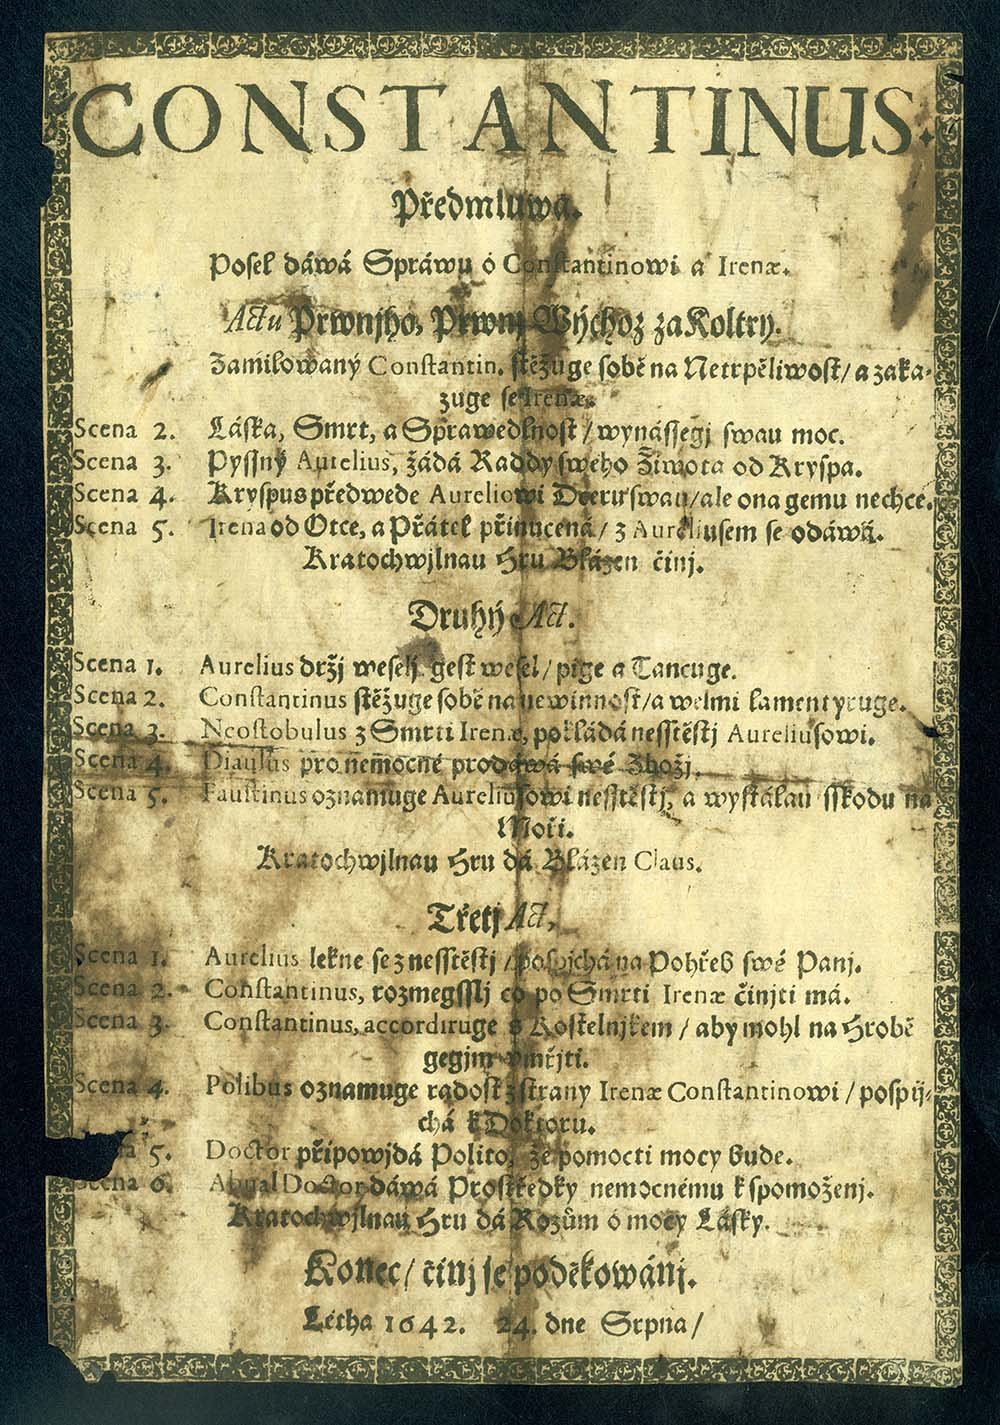 CONSTANTINUS.
Předmluwa.
Posel dáwá Spráwu ó Constantinowi a Irenæ.
Actu Prwnjho, Prwnj Wýchoz za Koltry.
Zamilowaný Constantin. stěžuge sobě na Netrpěliwost/ a zaka-
zuge se Irenæ.
Scena 2. Láska, Smrt, a Sprawedlnost/ wynássegj swau moc.
Scena 3. Pyssný Aurelius, žádá Raddy sweho Žiwota od Kryspa.
Scena 4. Kryspus předwede Aureliowi Dceru swau/ ale ona gemu nechce.
Scena 5. Irena od Otce, a Přátel přinucená/ z Aureliusem se odáwá.
Kratochwjlnau Hru Blázen činj.
Druhý Act.
Scena 1. Aurelius držj weselj gest wesel/ pige a Tancuge.
Scena 2. Constantinus stěžuge sobě na newinnost/ a welmi lamentyruge.
Scena 3. Neostobulus z Smrti Irenæ, pokládá nesstěstj Aureliusowi.
Scena 4. Diaulus pro nem̄ocné prodáwá swé Zbožj.
Scena 5. Faustinus oznamuge Aureliusowi nesstěstj, a wystálau sskodu na
Moři.
Kratochwjlnau Hru dá Blázen Claus.
Třetj Act,
Scena 1. Aurelius lekne se z nesstěstj/ pospjchá na Pohřeb swé Panj.
Scena 2. Constantinus, rozmegsslj co po Smrti Irenæ činjti má.
Scena 3. Constantinus, accordiruge s Kostelnjkem/ aby mohl na Hrobě
gegjm vmřjti.
Scena 4. Polibus oznamuge radost z strany Irenæ Constantinowi/ pospij-
chá k Doktoru.
5. Doctor připowjdá Polito, že pomocti mocy bude.
Scena 6. Doctor dáwá Prostředky nemocnému k spomoženj.
Kratochwjlnau Hru dá Rozům ó mocy Lásky.
Konec/ činj se poděkowánj.
Létha 1642. 24. dne Srpna/